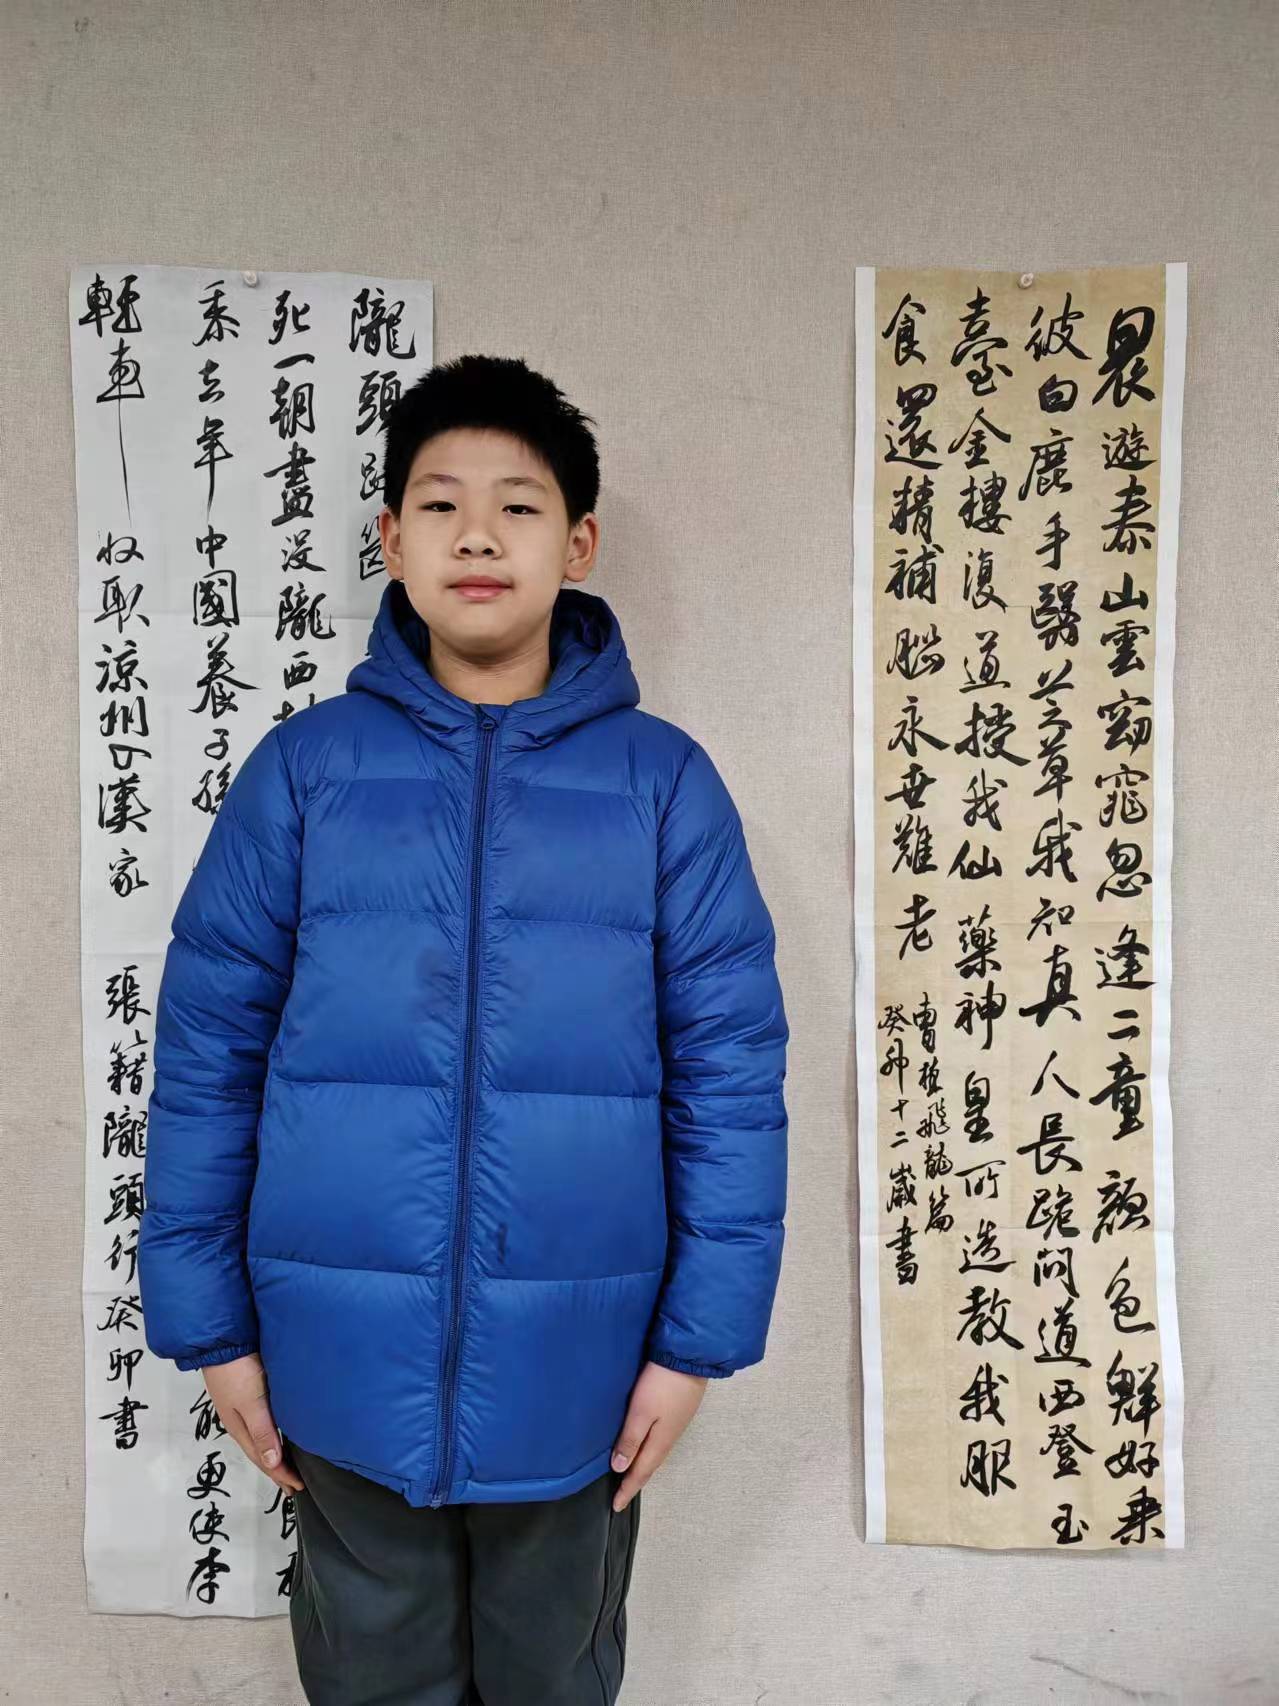 晨遊泰山雲窈窕忽逢二童顏色鮮好乘
彼白鹿手翳芝草我知真人長跪問道西登玉
臺金樓復道授我仙藥神皇所造教我服
食還精補腦永世難老
曹植飛龍篇
癸卯十二歲書
隴頭
死一朝盡沒隴西
黍去年中國養子孫 能更使李
輕車收取涼州入漢家 張籍隴頭行癸卯書